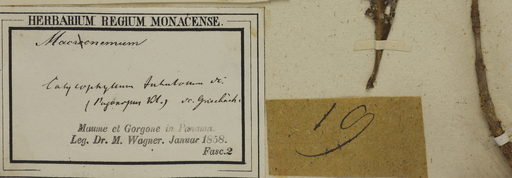 HERBARIUM REGIUM MONACENSE.
Macrocnemum
Calycophyllum tubulosum
Mamme et Gorgone in Panama.
Leg. Dr. M. Wagner. Januar 1858.
Fasc. 2
19